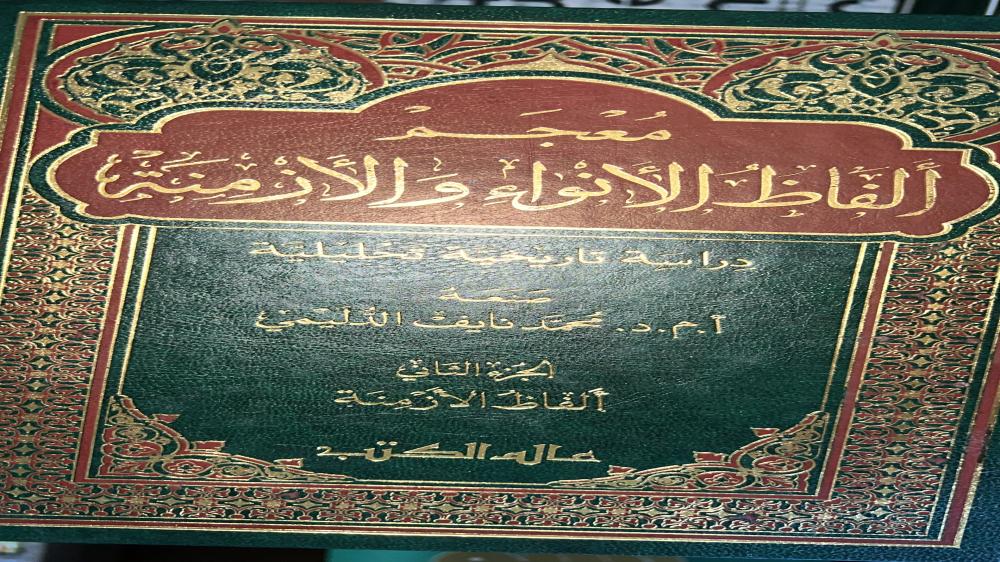 مُعْجَمْ
أَلفَاظُ الأَنوَاءِ وَالأَزمِنَة
دراسة تاريخية تحليلية
صنعه
أ.م.د. محمد نايف الدليمي
الجزء الثاني
ألفاظ الأزمنة
عالم الكتب